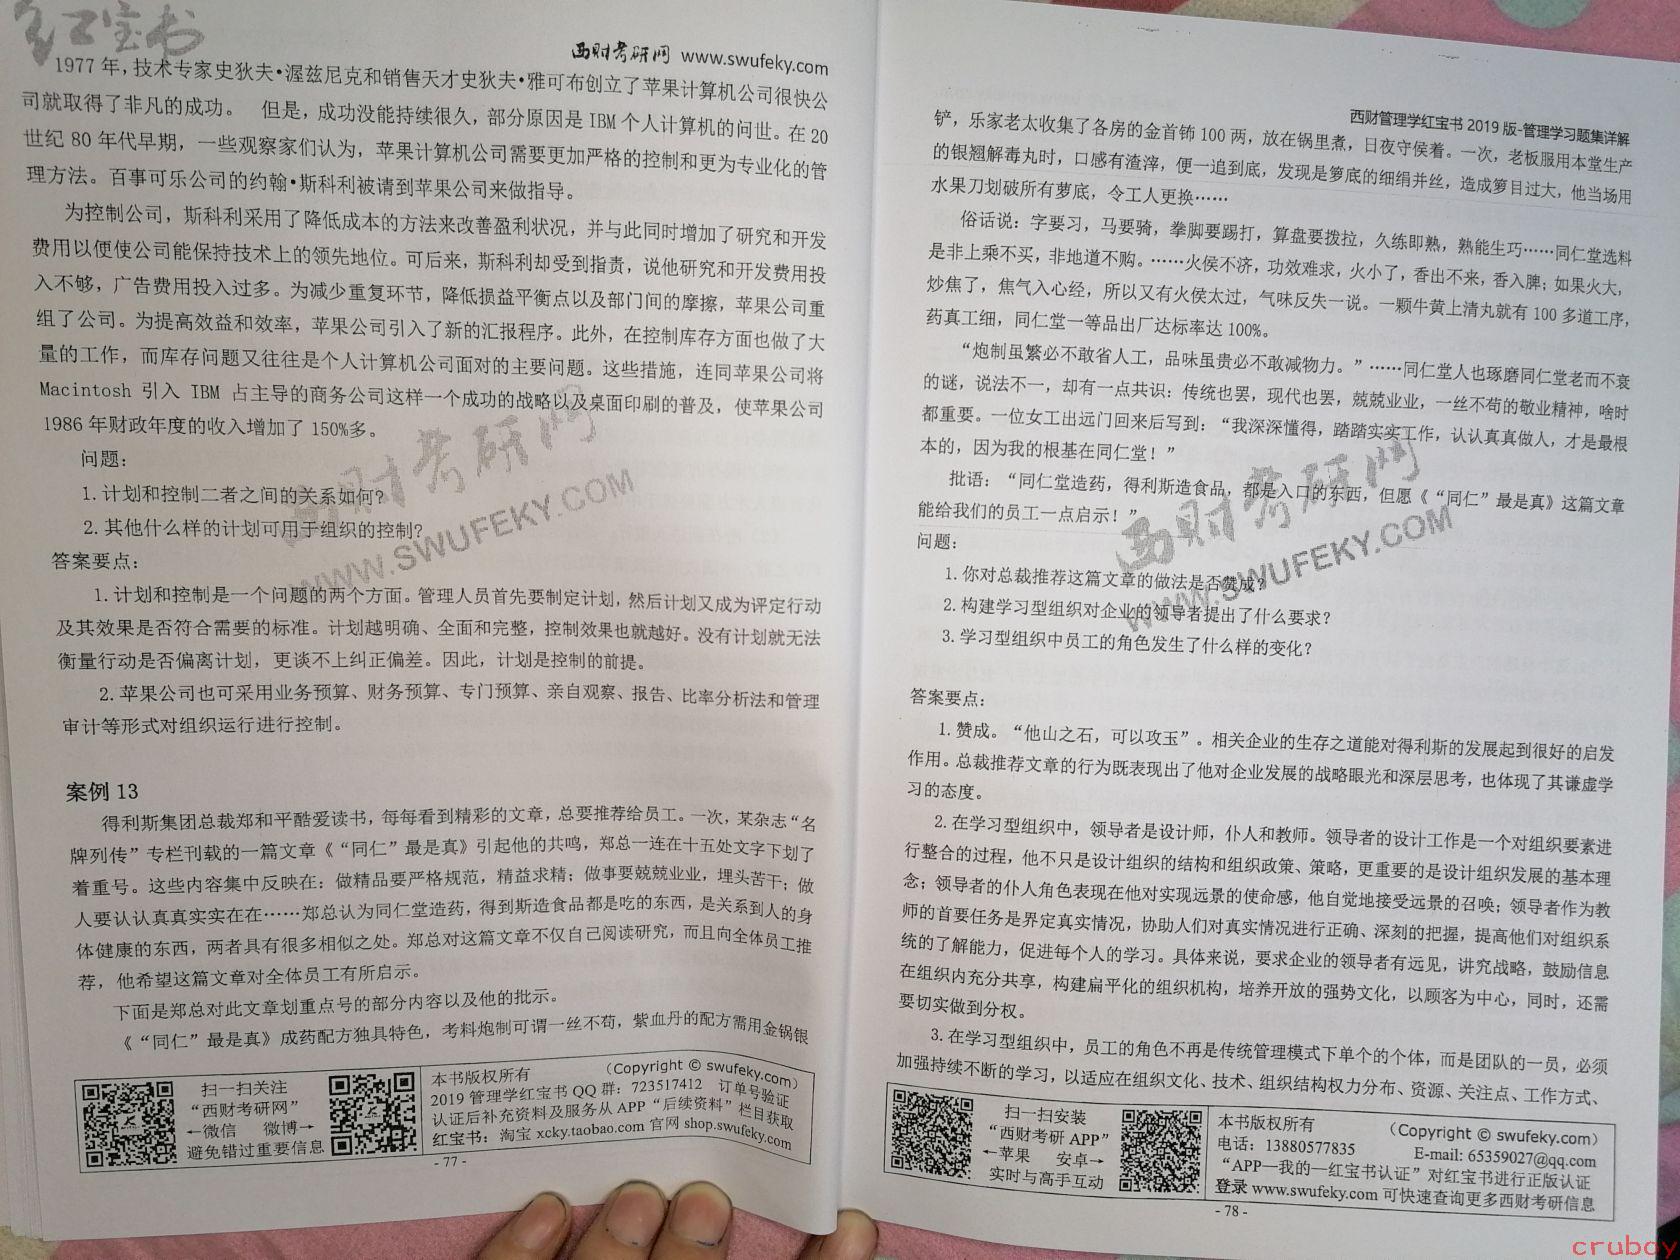 红宝书
西财考研网 www.swufeky.com
1977 年，技术专家史狄夫•渥兹尼克和销售天才史狄夫•雅可布创立了苹果计算机公司很快公
司就取得了非凡的成功。 但是，成功没能持续很久，部分原因是 IBM 个人计算机的问世。在 20
世纪 80 年代早期，一些观察家们认为，苹果计算机公司需要更加严格的控制和更为专业化的管
理方法。百事可乐公司的约翰•斯科利被请到苹果公司来做指导。
为控制公司，斯科利采用了降低成本的方法来改善盈利状况，并与此同时增加了研究和开发
费用以便使公司能保持技术上的领先地位。可后来，斯科利却受到指责，说他研究和开发费用投
入不够，广告费用投入过多。为减少重复环节，降低损益平衡点以及部门间的摩擦，苹果公司重
组了公司。为提高效益和效率，苹果公司引入了新的汇报程序。此外，在控制库存方面也做了大
量的工作，而库存问题又往往是个人计算机公司面对的主要问题。这些措施，连同苹果公司将
Macintosh 引入 IBM 占主导的商务公司这样一个成功的战略以及桌面印刷的普及，使苹果公司
1986 年财政年度的收入增加了 150%多。
问题：
1.计划和控制二者之间的关系如何？
2.其他什么样的计划可用于组织的控制？
答案要点：
1.计划和控制是一个问题的两个方面。管理人员首先要制定计划，然后计划又成为评定行动
及其效果是否符合需要的标准。计划越明确、全面和完整，控制效果也就越好。没有计划就无法
衡量行动是否偏离计划，更谈不上纠正偏差。因此，计划是控制的前提。
2.苹果公司也可采用业务预算、财务预算、专门预算、亲自观察、报告、比率分析法和管理
审计等形式对组织运行进行控制。
西财考研网
WWW.SWUFEKY.COM
案例 13
得利斯集团总裁郑和平酷爱读书，每每看到精彩的文章，总要推荐给员工。一次，某杂志“名
牌列传”专栏刊载的一篇文章《“同仁”最是真》引起他的共鸣，郑总一连在十五处文字下划了
着重号。这些内容集中反映在：做精品要严格规范，精益求精；做事要兢兢业业，埋头苦干；做
人要认认真真实实在在……郑总认为同仁堂造药，得到斯造食品都是吃的东西，是关系到人的身
体健康的东西，两者具有很多相似之处。郑总对这篇文章不仅自己阅读研究，而且向全体员工推
荐，他希望这篇文章对全体员工有所启示。
下面是郑总对此文章划重点号的部分内容以及他的批示。
《“同仁”最是真》成药配方独具特色，考料炮制可谓一丝不苟，紫血丹的配方需用金锅银
扫一扫关注
“西财考研网”
←微信 微博→
避免错过重要信息
本书版权所有 （Copyright © swufeky.com）
2019 管理学红宝书 QQ 群：723517412 订单号验证
认证后补充资料及服务从 APP“后续资料”栏目获取
红宝书：淘宝 xcky.taobao.com 官网 shop.swufeky.com
- 77 -
西财管理学红宝书 2019 版-管理学习题集详解
铲，乐家老太收集了各房的金首饰 100 两，放在锅里煮，日夜守侯着。一次，老板服用本堂生产
的银翘解毒丸时，口感有渣滓，便一追到底，发现是箩底的细绢并丝，造成箩目过大，他当场用
水果刀划破所有萝底，令工人更换……
俗话说：字要习，马要骑，拳脚要踢打，算盘要拨拉，久练即熟，熟能生巧……同仁堂选料
是非上乘不买，非地道不购。……火侯不济，功效难求，火小了，香出不来，香入脾；如果火大，
炒焦了，焦气入心经，所以又有火侯太过，气味反失一说。一颗牛黄上清丸就有 100 多道工序，
药真工细，同仁堂一等品出厂达标率达 100%。
“炮制虽繁必不敢省人工，品味虽贵必不敢减物力。”……同仁堂人也琢磨同仁堂老而不衰
的谜，说法不一，却有一点共识：传统也罢，现代也罢，兢兢业业，一丝不苟的敬业精神，啥时
都重要。一位女工出远门回来后写到：“我深深懂得，踏踏实实工作，认认真真做人，才是最根
本的，因为我的根基在同仁堂！”
批语：“同仁堂造药，得利斯造食品，都是入口的东西，但愿《“同仁”最是真》这篇文章
能给我们的员工一点启示！”
问题：
1.你对总裁推荐这篇文章的做法是否赞成？
2.构建学习型组织对企业的领导者提出了什么要求？
3.学习型组织中员工的角色发生了什么样的变化？
西财考研网
WWW.SWUFEKY.COM
答案要点：
1.赞成。“他山之石，可以攻玉”。相关企业的生存之道能对得利斯的发展起到很好的启发
作用。总裁推荐文章的行为既表现出了他对企业发展的战略眼光和深层思考，也体现了其谦虚学
习的态度。
2.在学习型组织中，领导者是设计师，仆人和教师。领导者的设计工作是一个对组织要素进
行整合的过程，他不只是设计组织的结构和组织政策、策略，更重要的是设计组织发展的基本理
念；领导者的仆人角色表现在他对实现远景的使命感，他自觉地接受远景的召唤；领导者作为教
师的首要任务是界定真实情况，协助人们对真实情况进行正确、深刻的把握，提高他们对组织系
统的了解能力，促进每个人的学习。具体来说，要求企业的领导者有远见，讲究战略，鼓励信息
在组织内充分共享，构建扁平化的组织机构，培养开放的强势文化，以顾客为中心，同时，还需
要切实做到分权。
3.在学习型组织中，员工的角色不再是传统管理模式下单个的个体，而是团队的一员，必须
加强持续不断的学习，以适应在组织文化、技术、组织结构权力分布、资源、关注点、工作方式、
扫一扫安装
“西财考研 APP”
←苹果 安卓→
实时与高手互动
本书版权所有 （Copyright © swufeky.com）
电话：13880577835 E-mail: 65359027@qq.com
“APP—我的—红宝书认证”对红宝书进行正版认证
登录 www.swufeky.com 可快速查询更多西财考研信息
- 78 -
cruboy